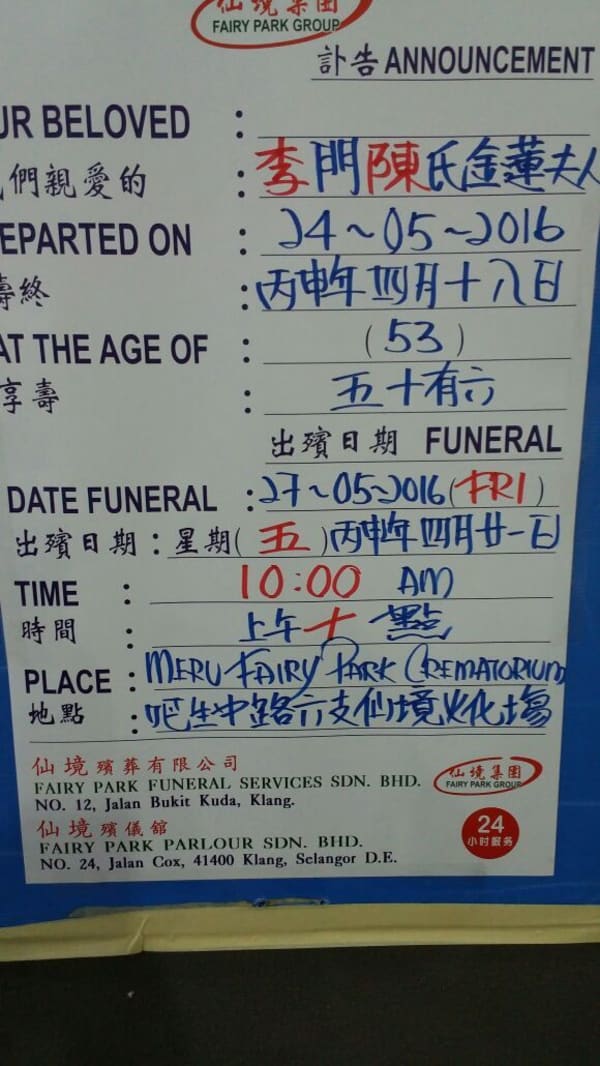 仙境集団
FAIRY PARK GROUP
訃告 ANNOUNCEMENT
UR BELOVED :
們親愛的 : 李門陳氏金蓮夫人
EPARTED ON : 24~05~2016
壽終 : 丙申年四月十八日
AT THE AGE OF : (53)
享壽 : 五十有六
出殯日期 FUNERAL
DATE FUNERAL : 27~05~2016 (FRI)
出殯日期 : 星期(五)丙申年四月廿一日
TIME : 10:00 AM
時間 : 上午十點
PLACE : MERU FAIRY PARK CREMATORIUM
地點 : 吧生中路六支仙境火化場
仙境殯葬有限公司
FAIRY PARK FUNERAL SERVICES SDN. BHD.
NO. 12, Jalan Bukit Kuda, Klang.
仙境集团
FAIRY PARK GROUP
仙境殯儀館
FAIRY PARK PARLOUR SDN. BHD.
NO. 24, Jalan Cox, 41400 Klang, Selangor D.E.
24
小时服务